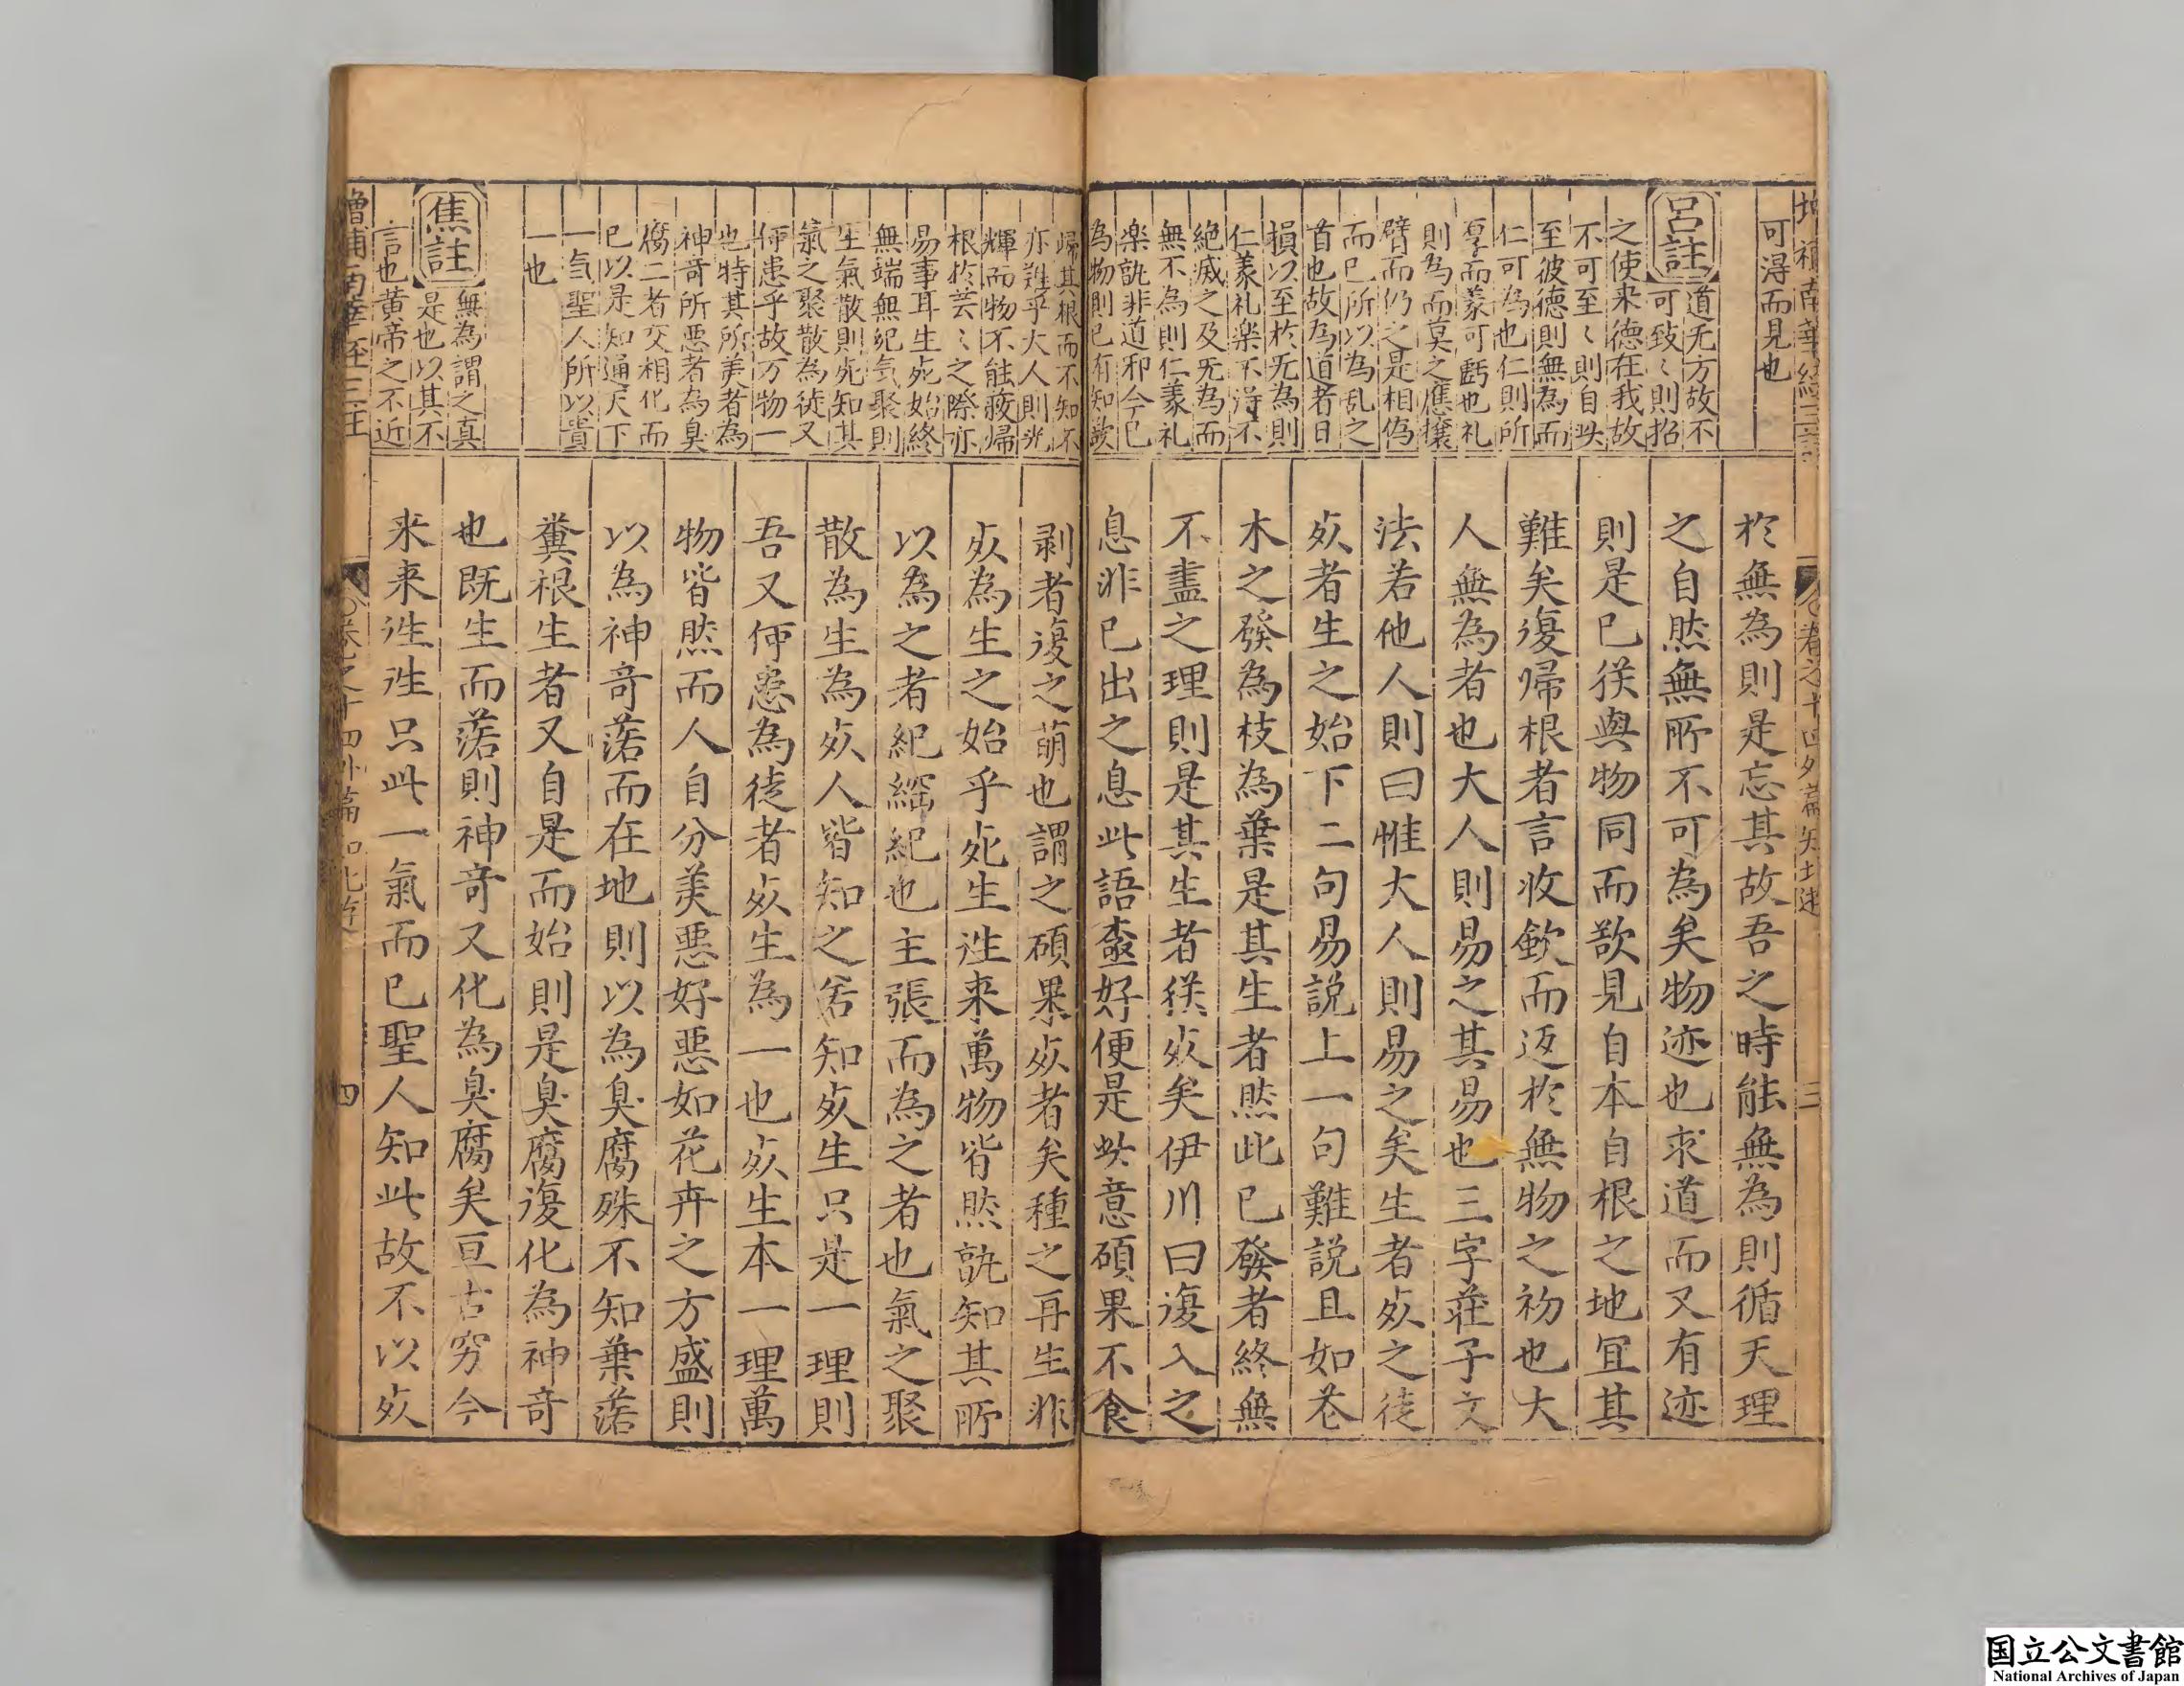 可淂而見也
呂註
道无方故不
可致〻則招
之使来德在我故
不可至〻則自㸔
至彼德則無為而
仁可為也仁則所
厚而義可虧也礼
則為而莫之應攘
臂而仍之是相偽
而已所以為乱之
首也故為道者日
損以至扵无為則
仁義礼楽不淂不
絶滅之及无為而
無不為則仁義礼
楽孰非道邪今已
為物則已有知欲
扵無為則是忘其故吾之時能無為則循天理
之自然無所不可為矣物迹也求道而又有迹
則是已後與物同而欲見自本自根之地冝其
難矣復帰根者言收斂而返扵無物之初也大
人無為者也大人則易之其易也三字莊子文
法若他人則曰惟大人則易之矣生者死之徒
死者生之始下二句易説上一句難説且如花
木之發為枝為葉是其生者然此已發者終無
不盡之理則是其生者後死矣伊川曰復入之
息非已出之息此語㙜好便是此意碩果不食
歸其根而不知不
亦難乎大人則光
輝而物不能蔽帰
根扵芸〻之際亦
易事耳生死始終
無端無紀気聚則
生氣散則死知其
氣之聚散為徒又
何患乎故万物一
也特其所美者為
神竒所悪者為臭
腐二者交相化而
已以是知通天下
一気聖人所以貴
一也
焦註
無為謂之真
是也以其不
言也黄帝之不近
剥者復之萌也謂之碩果死者矣種之再生非
死為生之始乎死生往来萬物皆然孰知其所
以為之者紀綱紀也主張而為之者也氣之聚
散為生為死人皆知之若知死生只是一理則
吾又何患為徒者死生為一也死生本一理萬
物皆然而人自分美悪好悪如花卉之方盛則
以為神竒落而在地則以為臭腐殊不知葉落
糞根生者又自是而始則是臭腐復化為神竒
也既生而落則神竒又化為臭腐矣亘古穷今
来来往往只此一氣而已聖人知此故不以死
増補南華經三註
卷之十四外篇知北遊
四
国立公文書館
National Archives of Japan